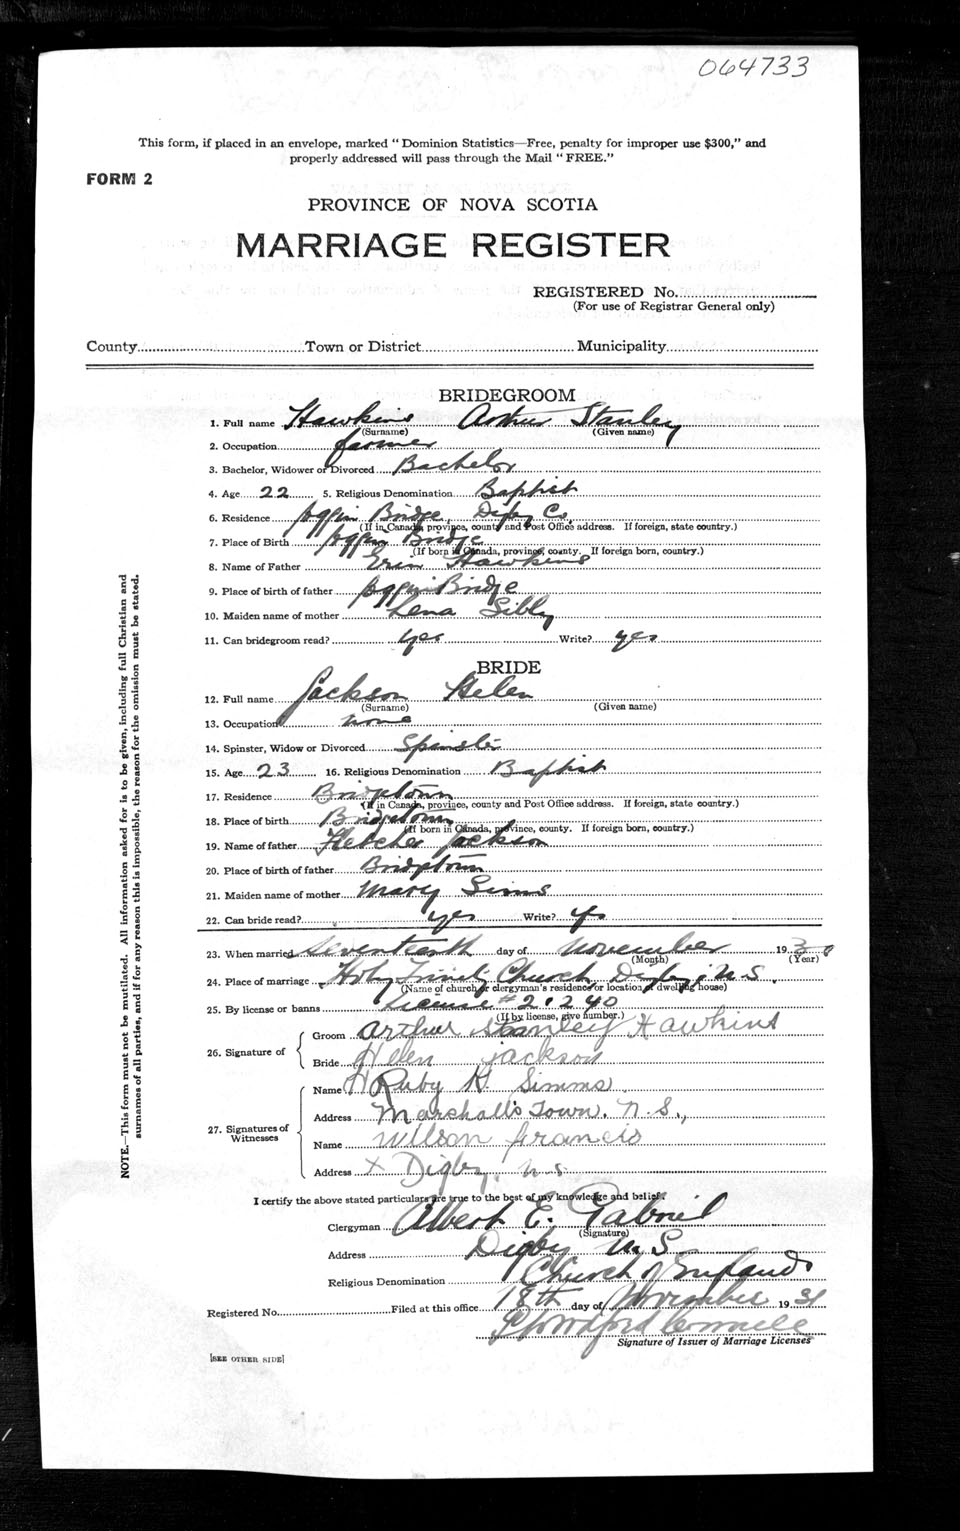 064733
This form, if placed in an envelope, marked "Dominion Statistics—Free, penalty for improper use $300," and
properly addressed will pass through the Mail "FREE."
FORM 2
PROVINCE OF NOVA SCOTIA
MARRIAGE REGISTER
REGISTERED No.
(For use of Registrar General only)
County Town or District Municipality
BRIDEGROOM
1. Full name Hawkins Arthur Stanley
(Surname) (Given name)
2. Occupation farmer
3. Bachelor, Widower or Divorced Bachelor
4. Age 22 5. Religious Denomination Baptist
6. Residence Joggin Bridge Digby Co.
(If in Canada, province, county and Post Office address. If foreign, state country.)
7. Place of Birth Joggin Bridge
(If born in Canada, province, county. If foreign born, country.)
8. Name of Father Hawkins
9. Place of birth of father Joggin Bridge
10. Maiden name of mother Lena
11. Can bridegroom read? yes Write? yes
BRIDE
12. Full name Jackson Helen
(Surname) (Given name)
13. Occupation none
14. Spinster, Widow or Divorced Spinster
15. Age 23 16. Religious Denomination Baptist
17. Residence Bridgetown
(If in Canada, province, county and Post Office address. If foreign, state country.)
18. Place of birth Bridgetown
(If born in Canada, province, county. If foreign born, country.)
19. Name of father Fletcher Jackson
20. Place of birth of father Bridgetown
21. Maiden name of mother Mary Sims
22. Can bride read? yes Write? yes
23. When married Seventeenth day of November 193
(Month) (Year)
24. Place of marriage Holy Trinity Church Digby, N.S.
(Name of church or clergyman's residence or location of dwelling house)
25. By license or banns License # 21240
(If by license, give number.)
26. Signature of Groom Arthur Stanley Hawkins
Bride Helen Jackson
27. Signatures of Witnesses
Name Ruby H. Simms
Address Marshalls Town, N.S.,
Name Wilson Francis
Address x Digby, N.S.
I certify the above stated particulars are true to the best of my knowledge and belief.
Clergyman Albert E. Gabriel
(Signature)
Address Digby N.S.
Religious Denomination Church of England
Registered No. Filed at this office 18th day of November 1931
Signature of Issuer of Marriage Licenses
[SEE OTHER SIDE]
NOTE.—This form must not be mutilated. All information asked for is to be given, including full Christian and
surnames of all parties, and if for any reason this is impossible, the reason for the omission must be stated.